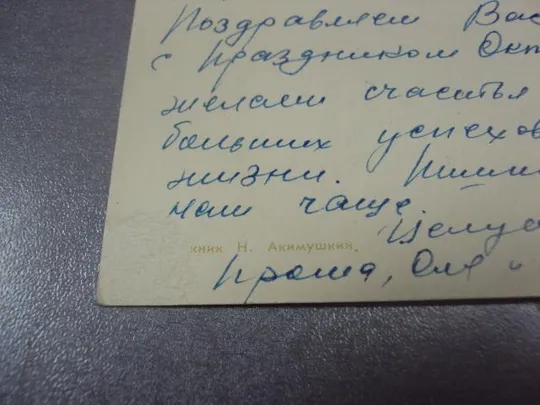 Поздравляем Вас
с праздником Окт
желаем счастья
больших успехов
жизни. Пиши
нам чаще.
Целуе
кник Н. Акимушкин.
Оля